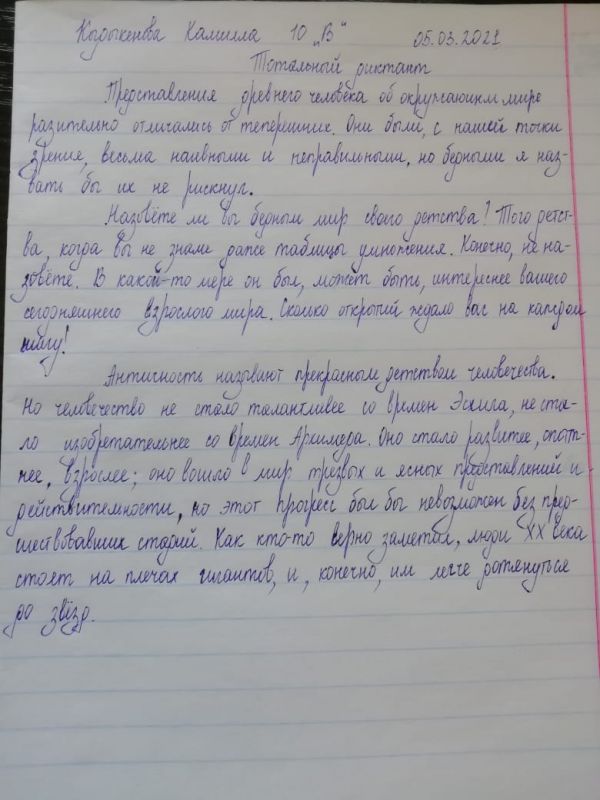 Кыдыкенова Камилла 10 „В“ 05.03.2021
Тотальный диктант
Представления древнего человека об окружающим мире
разительно отличались от теперешних. Они были, с нашей точки
зрения, весьма наивными и неправильными, но бедными я наз-
вать бы их не рискнул.
Назовёте ли вы бедным мир своего детства? Того детст-
ва, когда вы не знали даже таблицы умножения. Конечно, не на-
зовёте. В какой-то мере он был, может быть, интереснее вашего
сегодняшнего взрослого мира. Сколько открытий ждало вас на каждом
шагу!
Античность называют прекрасным детством человечества.
Но человечество не стало талантливее со времен Эсхила, не ста-
ло изобретательнее со времен Архимеда. Оно стало развитее, опыт-
нее, взрослее; оно вошло в мир трезвых и ясных представлений и
действительности, но этот прогресс был бы невозможен без пред-
шествовавших стадий. Как кто-то верно заметил, люди XX века
стоят на плечах гигантов, и, конечно, им легче дотянуться
до звёзд.